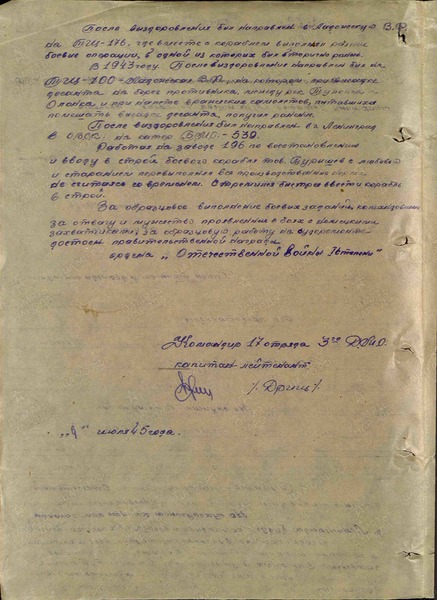 После выздоровления был направлен в Ладожскую В.Ф.
на ТЩ-176, где вместе с кораблем выполнял разные
боевые операции, в одной из которых был вторично ранен.
В 1943 году После выздоровления направлен был на
ТЩ-100 Ладожская В.Ф. на котором, при высадке
десанта на берег противника, между рек Тулокса
Олонка и при налете вражеских самолетов, пытавшихся
помешать высадке десанта, получил ранение.
После выздоровления был направлен в г Ленинград
в на катер 530.
Работая на заводе 196 по восстановлению
и вводу в строй боевого корабля тов. Бурищев с любовью
и старанием перевыполнял все производственные
не считался со временем. Стремился быстрее ввести корабль
в строй.
За образцовое выполнение боевых заданий, командования
за отвагу и мужество проявленные в боях с немецкими
захватчиками, за образцовую работу на судоремонте
достоин правительственной награды
ордена „Отечественной Войны II степени"
Командир 17 отряда 3го
капитан лейтенант
/Дриц/
июля 45 года.